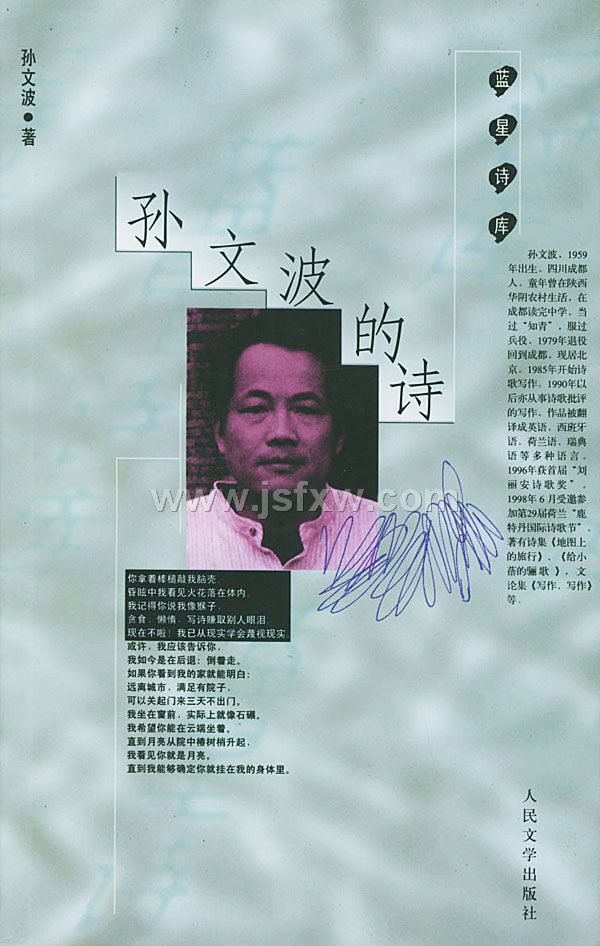 孙文波●著
蓝星诗库
孙文波的诗
孙文波，1959
年出生。四川成都
人。童年曾在陕西
华阴农村生活，在
成都读完中学。当
过“知青”，服过
兵役。1979年退役
回到成都。现居北
京。1985年开始诗
歌写作。1990年以
后亦从事诗歌批评
的写作。作品被翻
译成英语、西班牙
语、荷兰语、瑞典
语等多种语言。
1996年获首届“刘
丽安诗歌奖”。
1998年6月受邀参
加第29届荷兰“鹿
特丹国际诗歌节”。
著有诗集《地图上
的旅行》、《给小
蓓的骊歌》，文
论集《写作、写作》
等。
www.jsfxw.com
你拿着棒槌敲我脑壳，
昏眩中我看见火花落在体内，
我记得你说我像猴子，
贪食，懒惰，写诗赚取别人眼泪。
现在不啦！我已从现实学会蔑视现实。
或许，我应该告诉你，
我如今是在后退；倒着走。
如果你看到我的家就能明白：
远离城市，满足有院子，
可以关起门来三天不出门。
我坐在窗前，实际上就像石碾。
我希望你能在云端坐着。
直到月亮从院中椿树梢升起，
我看见你就是月亮。
直到我能够确定你就挂在我的身体里。
人民文学出版社